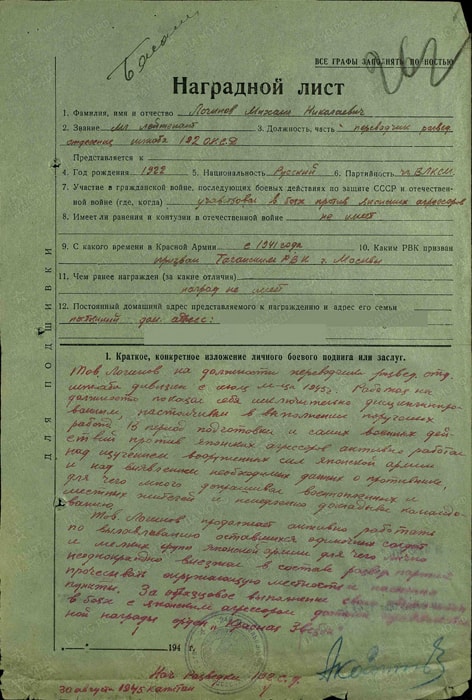 ВСЕ ГРАФЫ ЗАПОЛНЯТЬ ПОЛНОСТЬЮ
Наградной лист
1. Фамилия, имя и отчество Логинов Михаил Николаевич
2. Звание мл. лейтенант 3. Должность, часть переводчик развед.
отделения штаба 192 ОКСД
Представляется к
4. Год рождения 1922 5. Национальность Русский 6. Партийность чл ВЛКСМ
7. Участие в гражданской войне, последующих боевых действиях по защите СССР и отечествен-
ной войне (где, когда) участвовал в боях против японских агрессоров
8. Имеет ли ранения и контузии в отечественной войне не имеет
9. С какого времени в Красной Армии с 1941 года 10. Каким РВК призван
призван Таганским РВК г. Москвы
11. Чем ранее награжден (за какие отличия)
наград не имеет
12. Постоянный домашний адрес представляемого к награждению и адрес его семьи
дом. адрес:
ДЛЯ ПОДШИВКИ
I. Краткое, конкретное изложение личного боевого подвига или заслуг.
Тов. Логинов на должности переводчика развед. отд.
штаба дивизии с июля м-ца 1945г. Работая на
должности показал себя исключительно дисциплиниро-
ванным, настойчивым в выполнении поручаемых
работ. В период подготовки и самих военных дей-
ствий против японских агрессоров активно работал
над изучением вооруженных сил японской армии
и над выявлением необходимых данных о противнике,
для чего много допрашивал военнопленных и
местных жителей и докладывал командо-
ванию.
Тов. Логинов продолжает активно работать
по вылавливанию оставшихся одиночных солдат
и мелких групп японской армии для чего лично
неоднократно выезжал в составе развед. партий
прочесывать окружающую местность и населен.
пункты. За образцовое выполнение
в боях с японским агрессором достоин
ной награды орден "Красная Звезда"
194 г.
Нач разведки 192 с.д.
30 августа 1945 капитан